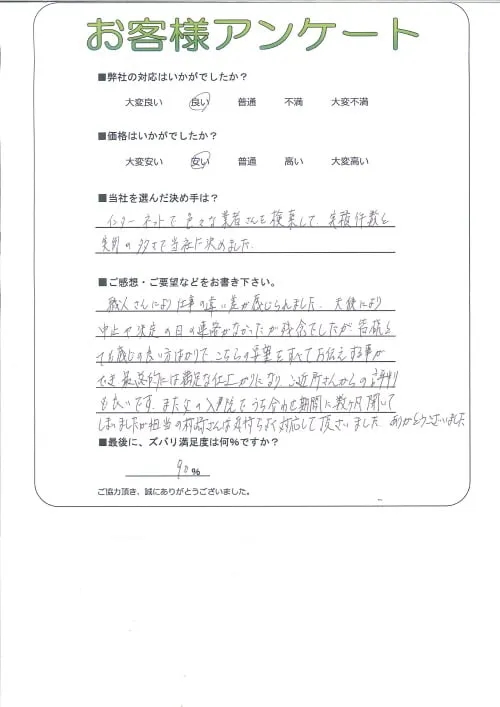 お客様アンケート
■弊社の対応はいかがでしたか？
大変良い 良い 普通 不満 大変不満
■価格はいかがでしたか？
大変安い 安い 普通 高い 大変高い
■当社を選んだ決め手は？
インターネットで色々な業者さんを検索して、実績件数と
実例の多さで当社に決めました.
■ご感想・ご要望などをお書き下さい。
職人さんにより仕事の違い差が感じられました. 天候により
中止や決定の日の連絡がなかったが残念でしたが皆様と
ても感じの良い方ばかりで、こちらの要望をすべてお伝えする事が
でき最終的には満足な仕上がりになり、ご近所さんからの評判
も良いです. また父の入院でうち合わせ期間に数ヶ月開いて
しまいましたが担当の村崎さんは気持ちよく対応して頂きいました ありがとうございました
■最後に、ズバリ満足度は何%ですか？
90%
ご協力頂き、誠にありがとうございました。